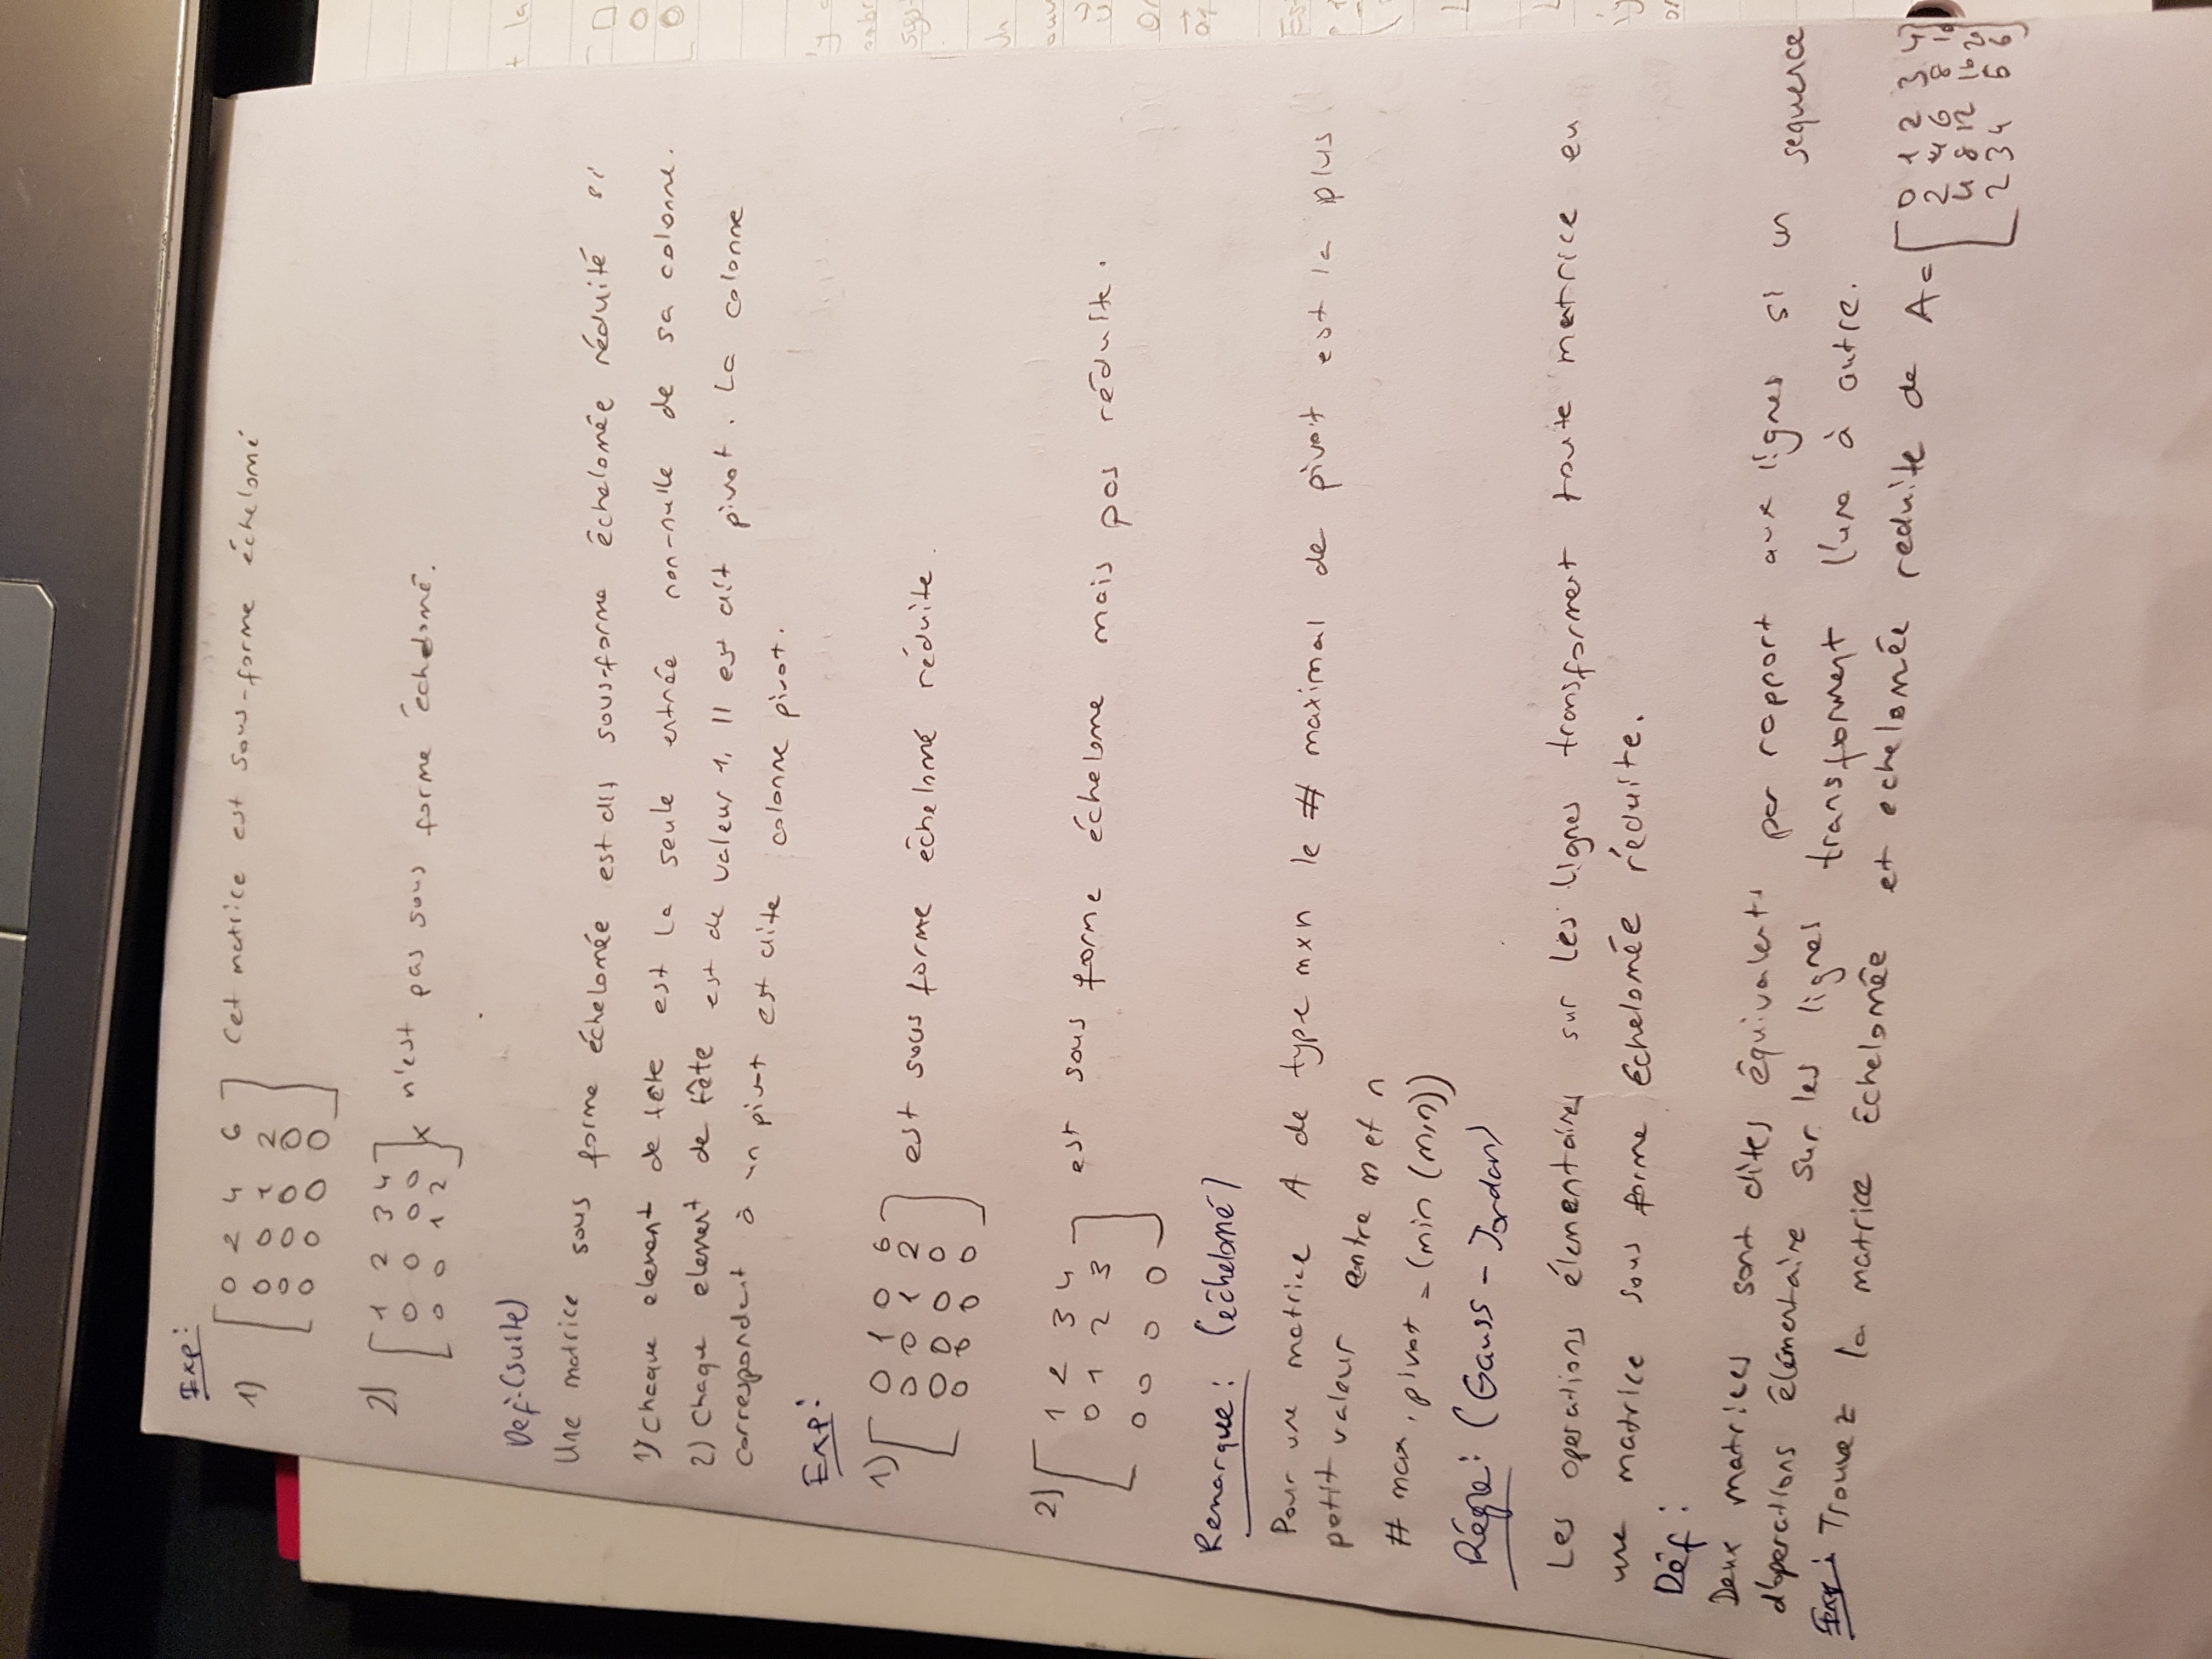 Exp:
1) [ 0 2 4 6 ] Cet matrice est sous-forme échelomé
0 0 1 2
0 0 0 0
0 0 0 0
2) [ 1 2 3 4 ] x n'est pas sous forme échelomé.
0 0 0 0
0 0 1 2
Def:(suite)
Une matrice sous forme échelomée est dit sous-forme échelomée réduité si
1) chaque element de tête est la seule entrée non-nulle de sa colonne.
2) chaque element de tête est de valeur 1, Il est dit pivot. La colonne
correspondent à un pivot est dite colonne pivot.
Exp:
1) [ 0 1 0 6 ] est sous forme échelomé réduite.
0 0 1 2
0 0 0 0
0 0 0 0
2) [ 1 2 3 4 ] est sous forme échelome mais pas réduite.
0 1 2 3
0 0 0 0
Remarque: (échelomé)
Pour une matrice A de type mxn le # maximal de pivot est la plus
petit valeur entre m et n
# max, pivot = (min (m,n))
Régle: (Gauss - Jordan)
Les operations élementaires sur les lignes transforment toute matrice en
une matrice sous forme échelomée réduite.
Déf:
Deux matrices sont dites équivalents par rapport aux lignes si un sequence
d'operations élémentaire sur les lignes transforment l'une à autre.
Exp: Trouvez la matrice échelomée et echelomée reduite de A = [ 0 1 2 3 4 ]
2 4 6 8 10
4 8 12 16
2 3 4 5 6